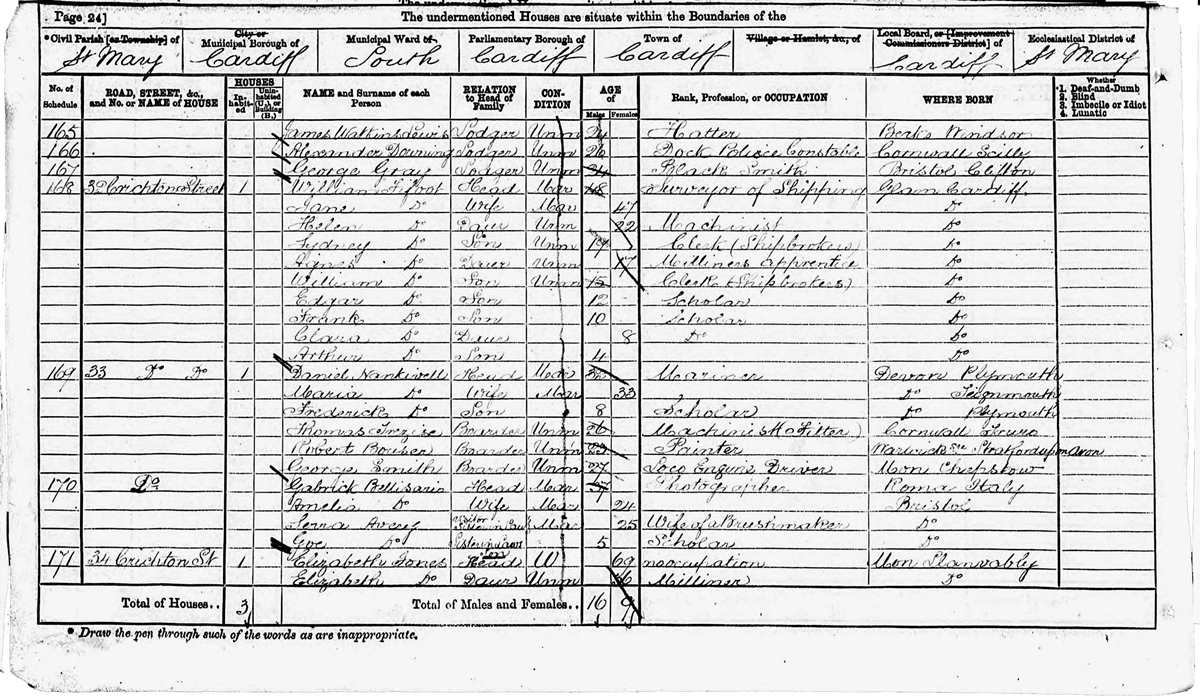 Page 24]
The undermentioned Houses are situate within the Boundaries of the
*Civil Parish [or Township] of St Mary
City or Municipal Borough of Cardiff
Municipal Ward of South
Parliamentary Borough of Cardiff
Town of Cardiff
Village or Hamlet, &c., of
Local Board, or [Improvement Commissioners District] of Cardiff
Ecclesiastical District of St Mary
No. of Schedule
ROAD, STREET, &c., and No. or NAME of HOUSE
HOUSES
Inhabited
Uninhabited (U.), or Building (B.)
NAME and Surname of each Person
RELATION to Head of Family
CONDITION
AGE of
Males
Females
Rank, Profession, or OCCUPATION
WHERE BORN
Whether
1. Deaf-and-Dumb
2. Blind
3. Imbecile or Idiot
4. Lunatic
165 James Watkins Lewis Lodger Unm 24 Hatter Berks Windsor
166 Alexander Downing Lodger Unm 26 Dock Police Constable Cornwall Scilly
167 George Gray Lodger Unm 24 Black Smith Bristol Clifton
168 32 Crichton Street 1 William Head Mar 48 Surveyor of Shipping Glam Cardiff
Jane Do Wife Mar 47 Do
Helen Do Daur Unm 22 Machinist Do
Sydney Do Son Unm 19 Clerk (Shipbrokers) Do
Agnes Do Daur Unm 17 Milliners apprentice Do
William Do Son Unm Clerk (Shipbrokers) Do
Edgar Do Son 12 Scholar Do
Frank Do Son 10 Scholar Do
Clara Do Daur 8 Do Do
Arthur Do Son 4 Do
169 33 Do Do 1 Daniel Nankivell Head Mar Mariner Devon Plymouth
Maria Do Wife Mar 33 Do Teignmouth
Frederick Do Son 8 Scholar Do Plymouth
Thomas Trezise Boarder Unm 26 Machinist (Fitter) Cornwall Truro
Robert Bouser Boarder Unm 23 Painter Warwick Stratford upon Avon
George Smith Boarder Unm 27 Loco Engine Driver Mon Chepstow
170 Do Gabrick Bellisario Head Mar 37 Photographer Roma Italy
Amelia Do Wife Mar 24 Bristol
Avery Visitor Mar 25 Wife of a Brushmaker Do
Do 5 Scholar Do
171 34 Crichton St 1 Elizabeth Jones Head W 69 no occupation Mon Llanvably
Elizabeth Do Daur Unm 36 Milliner Do
Total of Houses.. 3
Total of Males and Females.. 16 9
* Draw the pen through such of the words as are inappropriate.